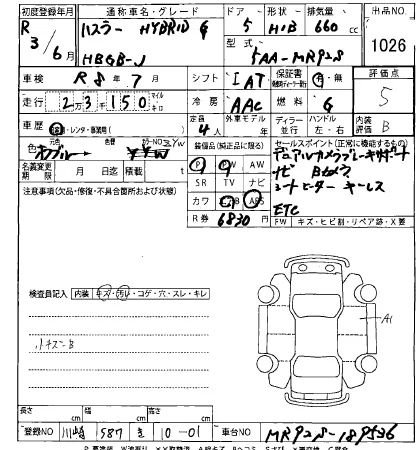 初度登録年月 通称車名・グレード ドア 形状 排気量 出品NO.
R 3/6月 ハスラー HYBRID G 5 H/B 660cc 1026
HBGB-J 型式 5AA-MR92S
車検 R8年7月 シフト IAT 保証書 有・無 評価点
走行 2万3千150 マイル キロ 冷房 AAC 燃料 G 5
車歴 自家用・レンタ・事業用( ) 定員 4人 外車モデル 年 ディーラー 並行 ハンドル 左・右 内装評価 B
色 元色 カラーNO. 装備品(純正品に限る) セールスポイント(正常に機能するもの)
PS PW AW デュアルカメラブレーキサポート
名義変更期限 月 日迄 積載 t SR TV ナビ ナビ Bカメラ
注意事項(欠品・修復・不具合箇所および状態) カワ ABS シートヒーター キーレス
R券 6830円 ETC
FW キズ・ヒビ割・リペア跡・X要
検査員記入 内装 キズ・汚れ・コゲ・穴・スレ・キレ
小キズ B
A1
長さ cm 幅 cm 高さ cm
登録NO 川崎 587 き 10-01 車台NO MR92S-189536